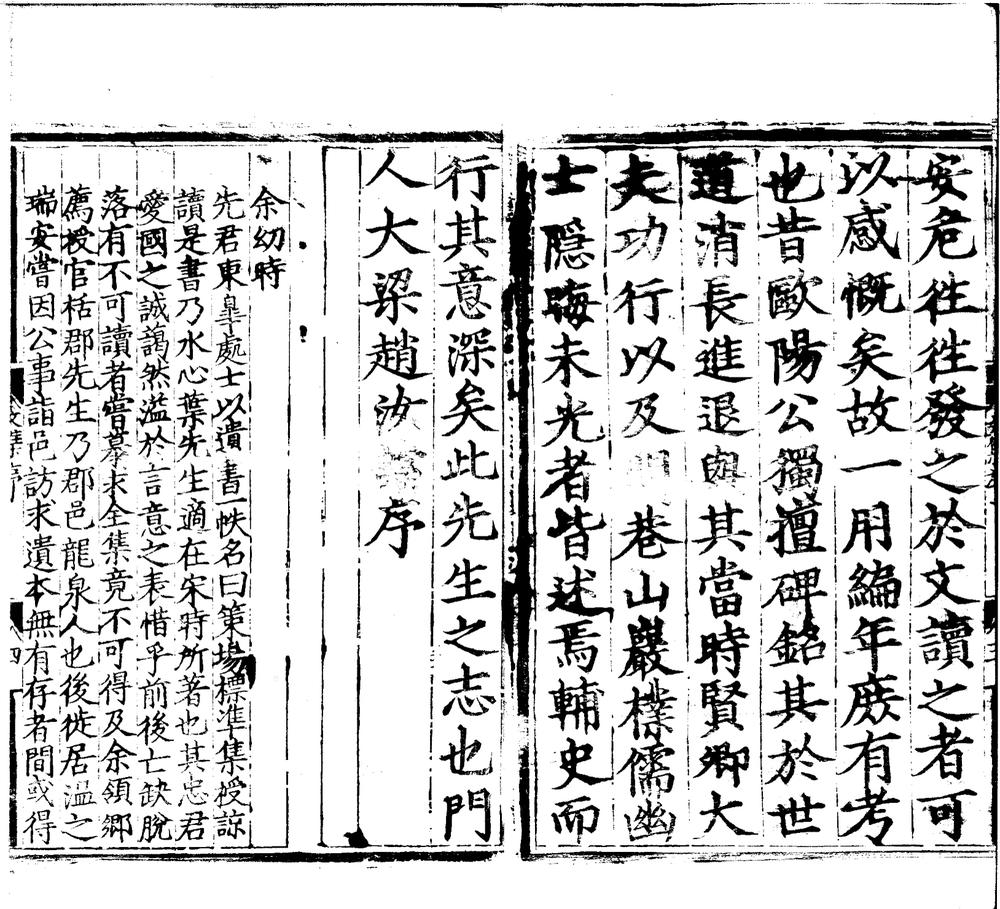 安危徃徃發之於文讀之者可
以感慨矣故一用編年庶有考
也昔歐陽公獨擅碑銘其於世
道消長進退與其當時賢卿大
夫功行以及閭巷山巖樸儒幽
士隱晦未光者皆述焉輔史而
行其意深矣此先生之志也門
人大梁趙汝序
余幼時
先君東皐處士以遺書一帙名曰策場標准集授諒
讀是書乃水心葉先生適在宋時所著也其忠君
愛國之誠藹然溢於言意之表惜乎前後亡缺脫
落有不可讀者嘗募求全集竟不可得及余領鄉
薦授官栝郡先生乃郡邑龍泉人也後徙居溫之
瑞安嘗因公事詣邑訪求遺本無有存者間或得
文集序
四